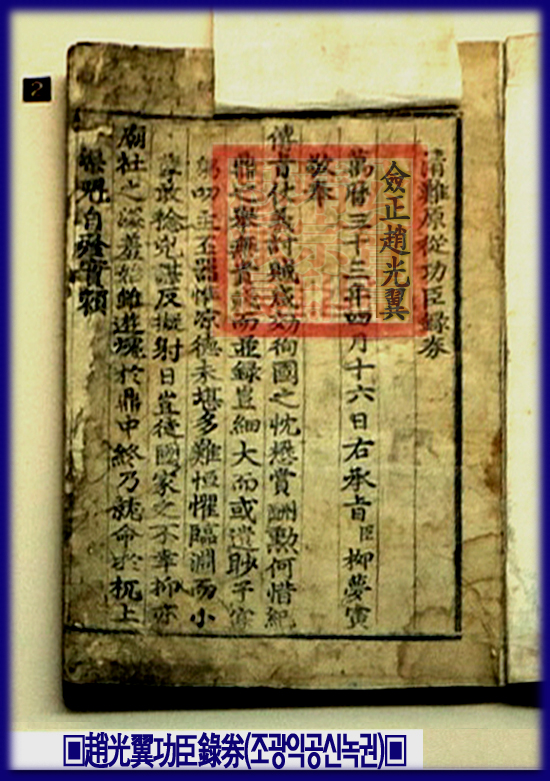 清難原從功臣錄券
僉正趙光翼
萬暦三十三年四月十六日右承旨臣柳夢寅
敬奉
傳旨仗義討賊咸効徇國之忱懋賞酬勲何惜紀
鼎之舉無貴賤而並録豈細大而或遺眇予寡
躬叨主丕器惟凉德未堪多難恒懼臨淵而小
孽敢稔兇謀反擬射日豈徒國家之不幸抑亦
廟社之深羞始雖遊魂於鼎中終乃就命於杌上
自
▣趙光翼功臣錄券(조광익공신녹권)▣